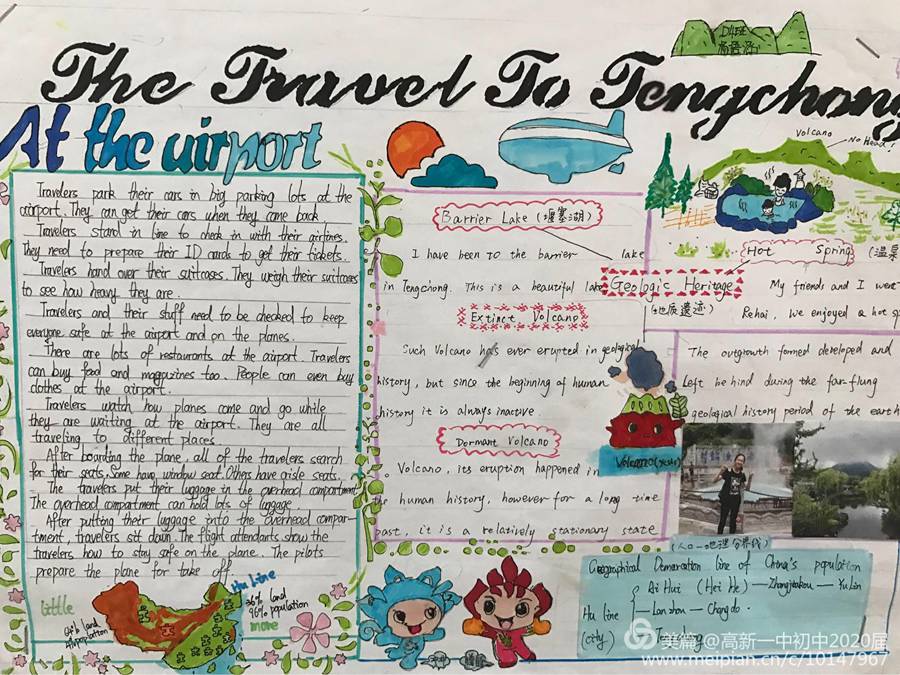 The Travel To Tengchong
At the airport
Travelers park their cars in big parking lots at the
airport. They can get their cars when they come back
Travelers stand in line to check in with their airlines.
They need to prepare their ID cards to get their tickets.
Travelers hand over their suitcases. They weigh their suitcases
to see how heavy they are.
Travelers and their stuff need to be checked to keep
everyone safe at the airport and on the planes.
There are lots of restaurants at the airport. Travelers
can buy food and magazines too. People can even buy
clothes at the airport.
Travelers watch how planes come and go while
they are waiting at the airport. They are all
traveling to different places
After boarding the plane, all of the travelers search
for their seats. Some have window seat. Others have aisle seats.
The travelers put their luggage in the overhead compartment
The overhead compartment can hold lots of luggage.
After putting their luggage into the overhead compar-
tment, travelers sit down. The flight attendants show the
travelers how to stay safe on the plane. The pilots
prepare the plane for take off
little
Hu Line
36% land
96% population
more
64% land
4% population
Barrier Lake (堰塞湖)
I have been to the barrier lake
in Tengchong. This is a beautiful lake
Extinct Volcano
Such Volcano has ever erupted in geological
history, but since the beginning of human
history it is always inactive.
Dormant Volcano
Volcano, its eruption happened in
the human history, however for a long time
past, it is a relatively stationary state
Volcano
No Head!
Hot Spring (温泉
My friends and I went
Rehai, We enjoyed a hot sp
Geologic Heritage
(地质遗迹)
The outgrowth formed developed and
left behind during the far-flung
geological history period of the earth
Volcano
(人口-地理分界线)
Geographical Demarcation Line of China's population
Hu line
(city)
Ai Hui (Hei He) — Zhangjiakou — Yu Lin
Lan zhou — Chengdu
Tengchong
美篇@高新一中初中2020届
www.meipian.cn/c/10147967